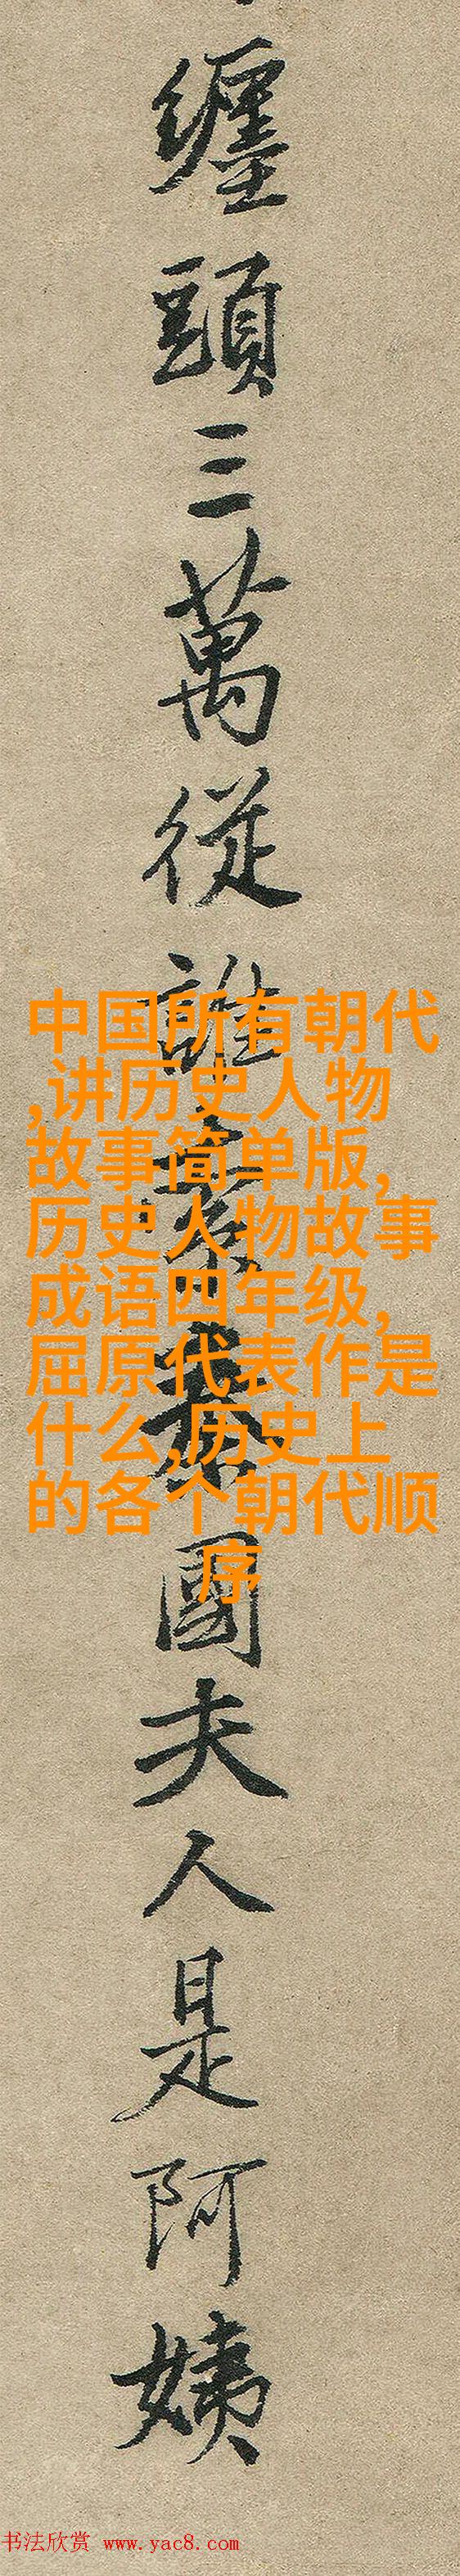 纏頭三萬從誰索秦國夫人是阿姨
中国所有朝代
,讲历史人物
故事简单版,
历史人物故事
成语四年级,
屈原代表作是
什么,历史上
的各个朝代顺
序
书法欣赏 www.yac8.com